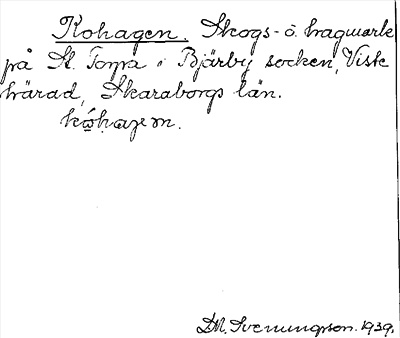 Kohagen. Skogs- o. hagmark
på St. Torpa i Bjärby socken, Viste
härad, Skaraborgs län.
kóhagen.
D.M. Svenungson. 1939.